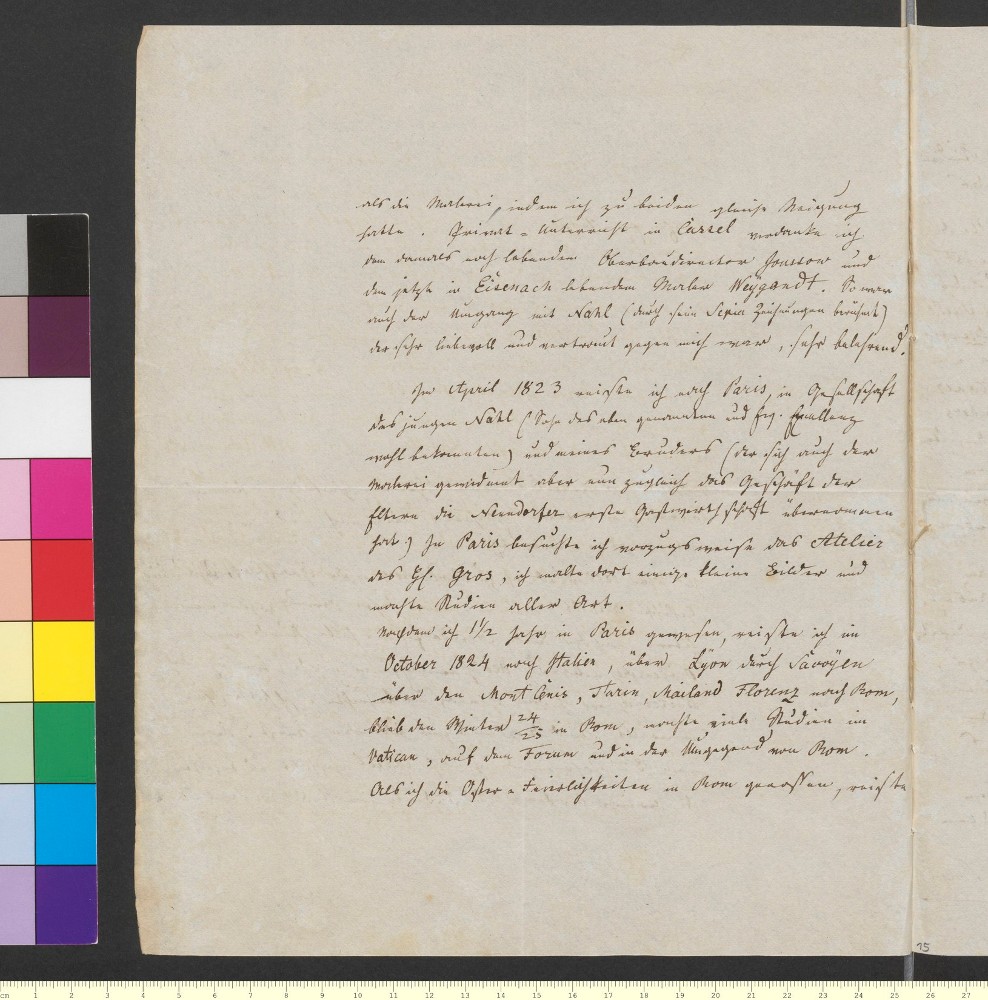 als die Malerei, indem ich zu beiden gleiche Neigung
hatte. Privat-Unterricht in Cassel verdanke ich
dem damals noch lebenden Oberbaudirector Jussow und
dem jetzt in Eisenach lebenden Maler Weÿgandt. So war
auch der Umgang mit Nahl (durch seine Sepia Zeichnungen berühmt)
der sehr liebevoll und vertraut gegen mich war, sehr belehrend.
Im April 1823 reiste ich nach Paris, in Gesellschaft
des jungen Nahl (Sohn des eben genannten und Ew. Excellenz
wohl bekannten) und meines Bruders (der sich auch der
Malerei gewidmet aber nun zugleich das Geschäft der
Eltern die Nenndorfer erste Gastwirthschaft übernommen
hat.) In Paris besuchte ich vorzugsweise das Atelier
des H. Gros, ich malte dort einige kleine Bilder und
machte Studien aller Art.
Nachdem ich 1 1/2 Jahr in Paris gewesen, reiste ich im
October 1824 nach Italien, über Lÿon durch Savoÿen
über den Mont Cenis, Turin, Mailand Florenz nach Rom,
blieb den Winter 24/25 in Rom, machte viele Studien im
Vatican, auf dem Forum und in der Umgegend von Rom.
Als ich die Oster-Feierlichkeiten in Rom genossen, reiste
15
cm 1 2 3 4 5 6 7 8 9 10 11 12 13 14 15 16 17 18 19 20 21 22 23 24 25 26 27